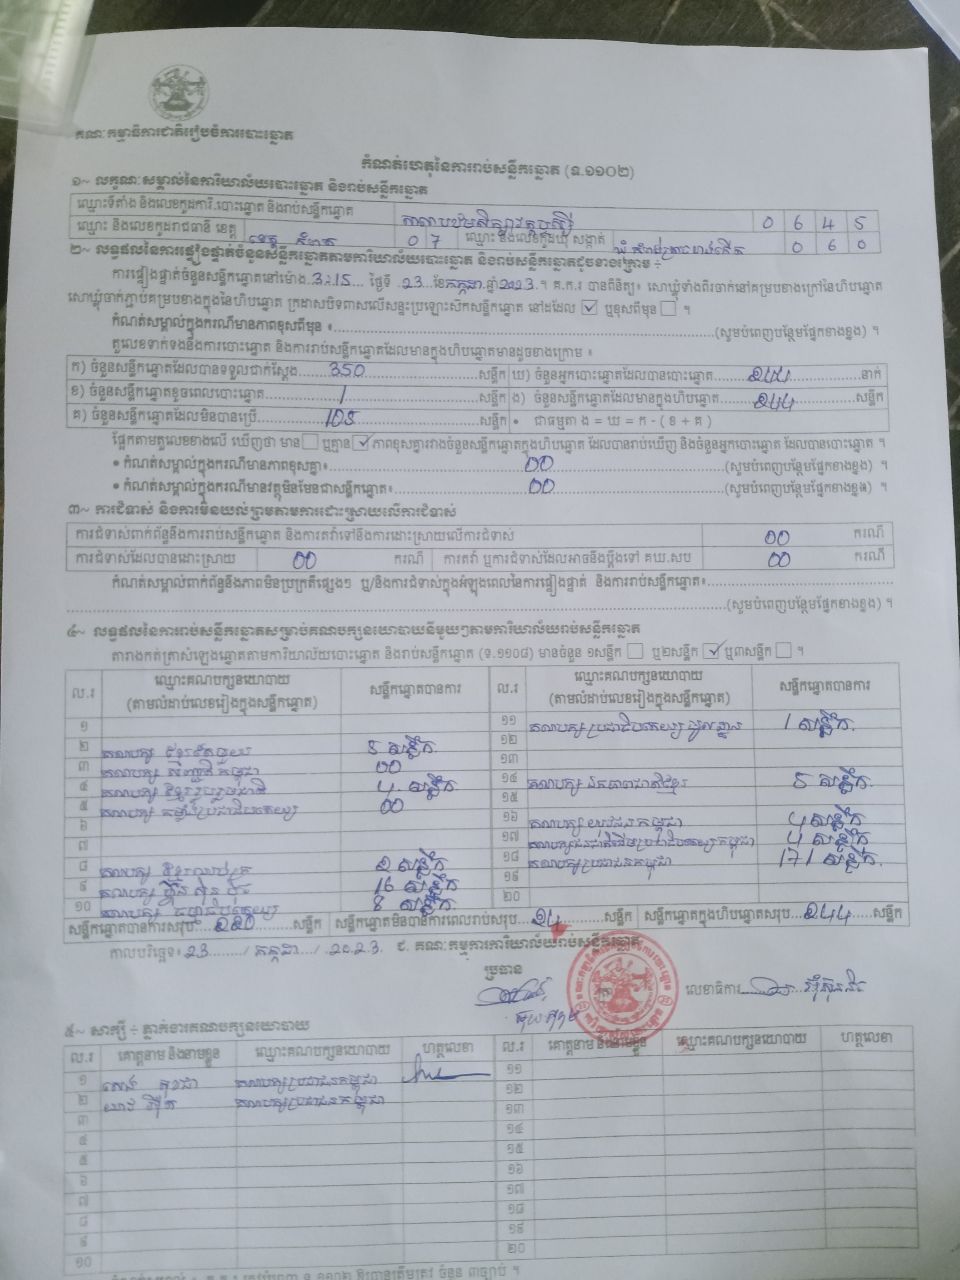 គណៈកម្មាធិការជាតិរៀបចំការបោះឆ្នោត
កំណត់ហេតុនៃការរាប់សន្លឹកឆ្នោត (ទ.១១០២)
១~ លក្ខណៈសម្គាល់នៃការិយាល័យបោះឆ្នោត និងរាប់សន្លឹកឆ្នោត
ឈ្មោះទីតាំង និងលេខកូដការិ.បោះឆ្នោត និងរាប់សន្លឹកឆ្នោត 0 6 4 5
ឈ្មោះ និងលេខកូដរាជធានី ខេត្ត ខេត្ត កំពត 0 7 ឈ្មោះ និងលេខកូដឃុំ សង្កាត់ 0 6 0
២~ លទ្ធផលនៃការផ្ទៀងផ្ទាត់ចំនួនសន្លឹកឆ្នោតតាមការិយាល័យបោះឆ្នោត និងរាប់សន្លឹកឆ្នោតដូចខាងក្រោម ÷
ការផ្ទៀងផ្ទាត់ចំនួនសន្លឹកឆ្នោតនៅម៉ោង 3:15 ថ្ងៃទី 23 ខែ កក្កដា ឆ្នាំ 2023 ។ គ.ក.រ បានពិនិត្យ៖ សោឃ្លុំទាំងពីរចាក់នៅគម្របខាងក្រៅនៃហិបឆ្នោត
សោឃ្លុំចាក់ភ្ជាប់គម្របខាងក្នុងនៃហិបឆ្នោត ក្រដាសបិទពាសលើសន្ទះប្រឡោះសឹកសន្លឹកឆ្នោត នៅដដែល ☑ ឬខុសពីមុន ☐ ។
កំណត់សម្គាល់ក្នុងករណីមានភាពខុសពីមុន ៖ (សូមបំពេញបន្ថែមផ្នែកខាងខ្នង) ។
តួលេខទាក់ទងនឹងការបោះឆ្នោត និងការរាប់សន្លឹកឆ្នោតដែលមានក្នុងហិបឆ្នោតមានដូចខាងក្រោម ៖
ក) ចំនួនសន្លឹកឆ្នោតដែលបានទទួលជាក់ស្តែង 350 សន្លឹក ឃ) ចំនួនអ្នកបោះឆ្នោតដែលបានបោះឆ្នោត 244 នាក់
ខ) ចំនួនសន្លឹកឆ្នោតខូចពេលបោះឆ្នោត 1 សន្លឹក ង) ចំនួនសន្លឹកឆ្នោតដែលមានក្នុងហិបឆ្នោត 244 សន្លឹក
គ) ចំនួនសន្លឹកឆ្នោតដែលមិនបានប្រើ 105 សន្លឹក • ជាធម្មតា ង = ឃ = ក - ( ខ + គ )
ផ្អែកតាមតួលេខខាងលើ ឃើញថា មាន ☐ ឬគ្មាន ☑ ភាពខុសគ្នារវាងចំនួនសន្លឹកឆ្នោតក្នុងហិបឆ្នោត ដែលបានរាប់ឃើញ និងចំនួនអ្នកបោះឆ្នោត ដែលបានបោះឆ្នោត ។
• កំណត់សម្គាល់ក្នុងករណីមានភាពខុសគ្នា៖ 00 (សូមបំពេញបន្ថែមផ្នែកខាងខ្នង) ។
• កំណត់សម្គាល់ក្នុងករណីមានវត្ថុមិនមែនជាសន្លឹកឆ្នោត៖ 00 (សូមបំពេញបន្ថែមផ្នែកខាងខ្នង) ។
៣~ ការជំទាស់ និងការមិនយល់ព្រមតាមការដោះស្រាយលើការជំទាស់
ការជំទាស់ពាក់ព័ន្ធនឹងការរាប់សន្លឹកឆ្នោត និងការតវ៉ាទៅនឹងការដោះស្រាយលើការជំទាស់ 00 ករណី
ការជំទាស់ដែលបានដោះស្រាយ 00 ករណី ការតវ៉ា ឬការជំទាស់ដែលអាចនឹងប្តឹងទៅ គឃ.សប 00 ករណី
កំណត់សម្គាល់ពាក់ព័ន្ធនឹងភាពមិនប្រក្រតីផ្សេងៗ ឬ/និងការជំទាស់ក្នុងអំឡុងពេលនៃការផ្ទៀងផ្ទាត់ និងការរាប់សន្លឹកឆ្នោត៖
(សូមបំពេញបន្ថែមផ្នែកខាងខ្នង) ។
៤~ លទ្ធផលនៃការរាប់សន្លឹកឆ្នោតសម្រាប់គណបក្សនយោបាយនីមួយៗតាមការិយាល័យរាប់សន្លឹកឆ្នោត
តារាងកត់ត្រាសំឡេងឆ្នោតតាមការិយាល័យបោះឆ្នោត និងរាប់សន្លឹកឆ្នោត (ទ.១១០៨) មានចំនួន ១សន្លឹក ☐ ឬ២សន្លឹក ☑ ឬ៣សន្លឹក ☐ ។
ល.រ ឈ្មោះគណបក្សនយោបាយ (តាមលំដាប់លេខរៀងក្នុងសន្លឹកឆ្នោត) សន្លឹកឆ្នោតបានការ ល.រ ឈ្មោះគណបក្សនយោបាយ (តាមលំដាប់លេខរៀងក្នុងសន្លឹកឆ្នោត) សន្លឹកឆ្នោតបានការ
១ ១១ គណបក្ស ប្រជាធិបតេយ្យ មូលដ្ឋាន 1 សន្លឹក
២ 5 សន្លឹក ១២
៣ 00 ១៣
៤ គណបក្ស ខ្មែររួបរួមជាតិ 4 សន្លឹក ១៤ គណបក្ស ឯកភាពជាតិខ្មែរ 5 សន្លឹក
៥ គណបក្ស កម្លាំងប្រជាធិបតេយ្យ 00 ១៥
៦ ១៦ គណបក្ស យុវជនកម្ពុជា 4 សន្លឹក
៧ ១៧ គណបក្សជនជាតិដើមប្រជាធិបតេយ្យកម្ពុជា 4 សន្លឹក
៨ 2 សន្លឹក ១៨ គណបក្សប្រជាជនកម្ពុជា 171 សន្លឹក
៩ គណបក្ស ហ៊្វុនស៊ិនប៉ិច 16 សន្លឹក ១៩
១០ 8 សន្លឹក ២០
សន្លឹកឆ្នោតបានការសរុប 220 សន្លឹក សន្លឹកឆ្នោតមិនបានការពេលរាប់សរុប 24 សន្លឹក សន្លឹកឆ្នោតក្នុងហិបឆ្នោតសរុប 244 សន្លឹក
កាលបរិច្ឆេទ៖ 23 / កក្កដា / 2023 ជ. គណៈកម្មការការិយាល័យរាប់សន្លឹកឆ្នោត
ប្រធាន
លេខាធិការ
៥~ សាក្សី ÷ ភ្នាក់ងារគណបក្សនយោបាយ
ល.រ គោត្តនាម និងនាមខ្លួន ឈ្មោះគណបក្សនយោបាយ ហត្ថលេខា ល.រ គោត្តនាម និងនាមខ្លួន ឈ្មោះគណបក្សនយោបាយ ហត្ថលេខា
១ គណបក្សប្រជាជនកម្ពុជា ១១
២ គណបក្សប្រជាជនកម្ពុជា ១២
៣ ១៣
៤ ១៤
៥ ១៥
៦ ១៦
៧ ១៧
៨ ១៨
៩ ១៩
១០ ២០